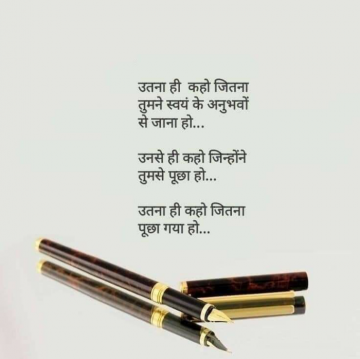 उतना ही कहो जितना
तुमने स्वयं के अनुभवों
से जाना हो...
उनसे ही कहो जिन्होंने
तुमसे पूछा हो...
उतना ही कहो जितना
पूछा गया हो...